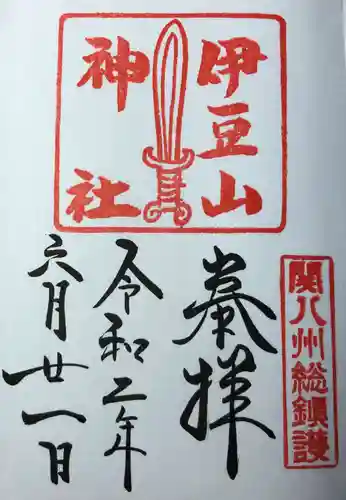 伊豆山
神社
關八州総鎮護
奉拝
令和二年
六月廿一日